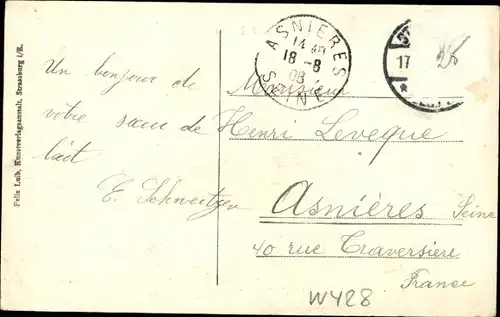 Felix Luib, Kunstverlagsanstalt, Strassburg i/E.
Un bonjour de
votre sœur de
lait
E. Schweitzer
ASNIÈRES
18 -8
08
SEINE
17
Monsieur
Henri Leveque
Asnières Seine
40 rue Traversière
France
W428